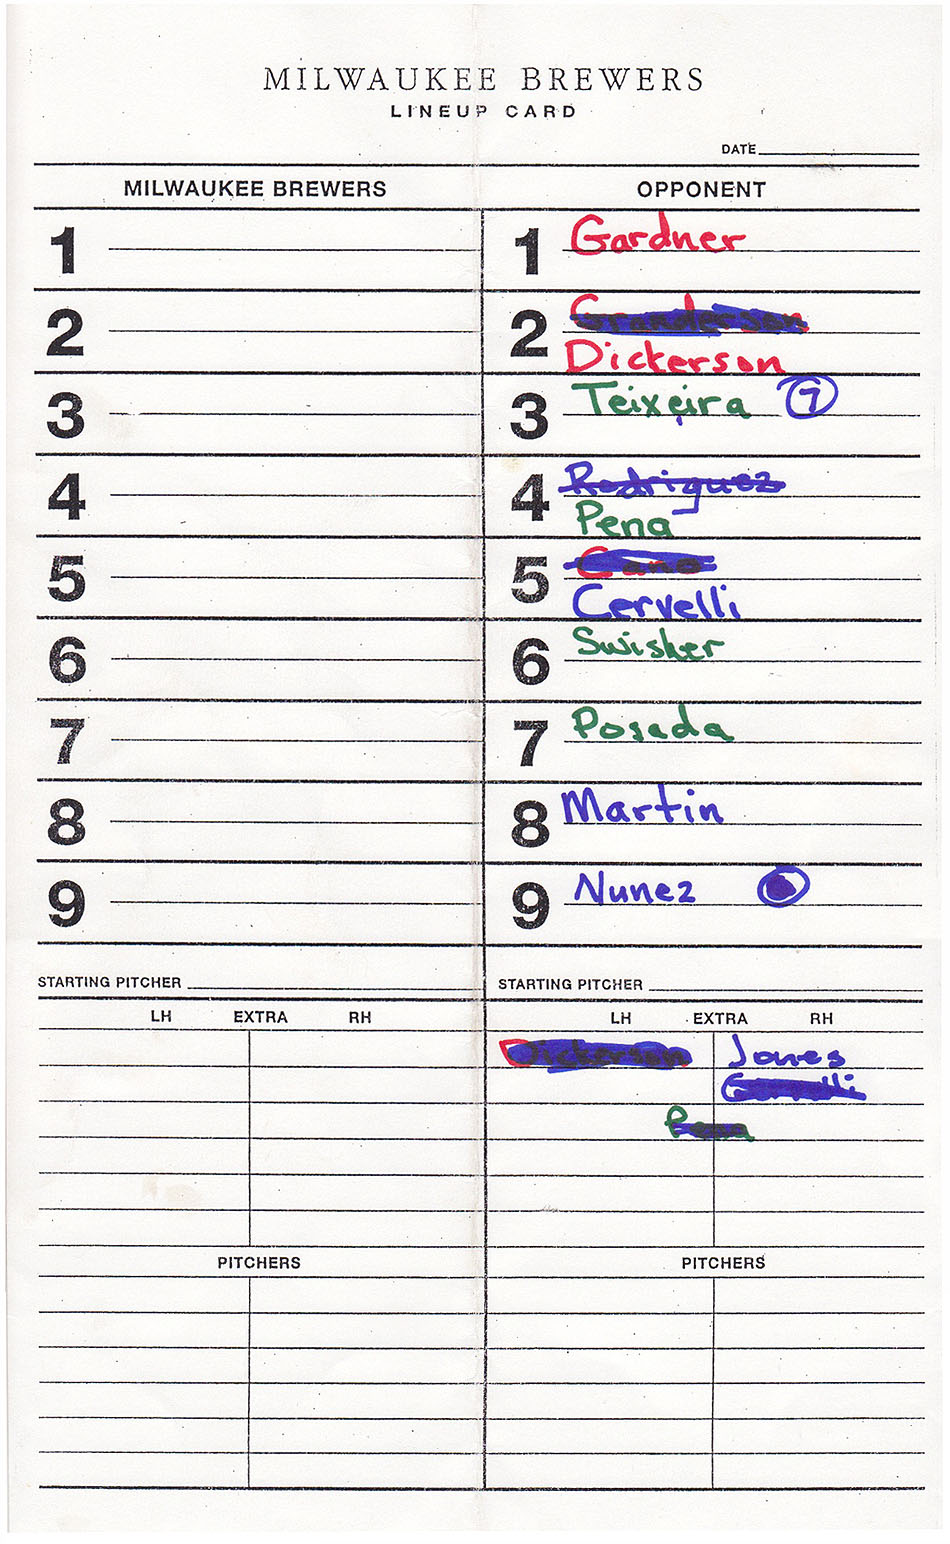 MILWAUKEE BREWERS
LINEUP CARD
DATE
MILWAUKEE BREWERS
1
2
3
4
5
6
7
8
9
STARTING PITCHER
LH EXTRA RH
PITCHERS
OPPONENT
1 Gardner
2 Granderson
Dickerson
3 Teixeira 7
4 Rodriguez
Pena
5 Cano
Cervelli
6 Swisher
7 Posada
8 Martin
9 Nunez
STARTING PITCHER
LH EXTRA RH
Dickerson Jones
Cervelli
Pena
PITCHERS